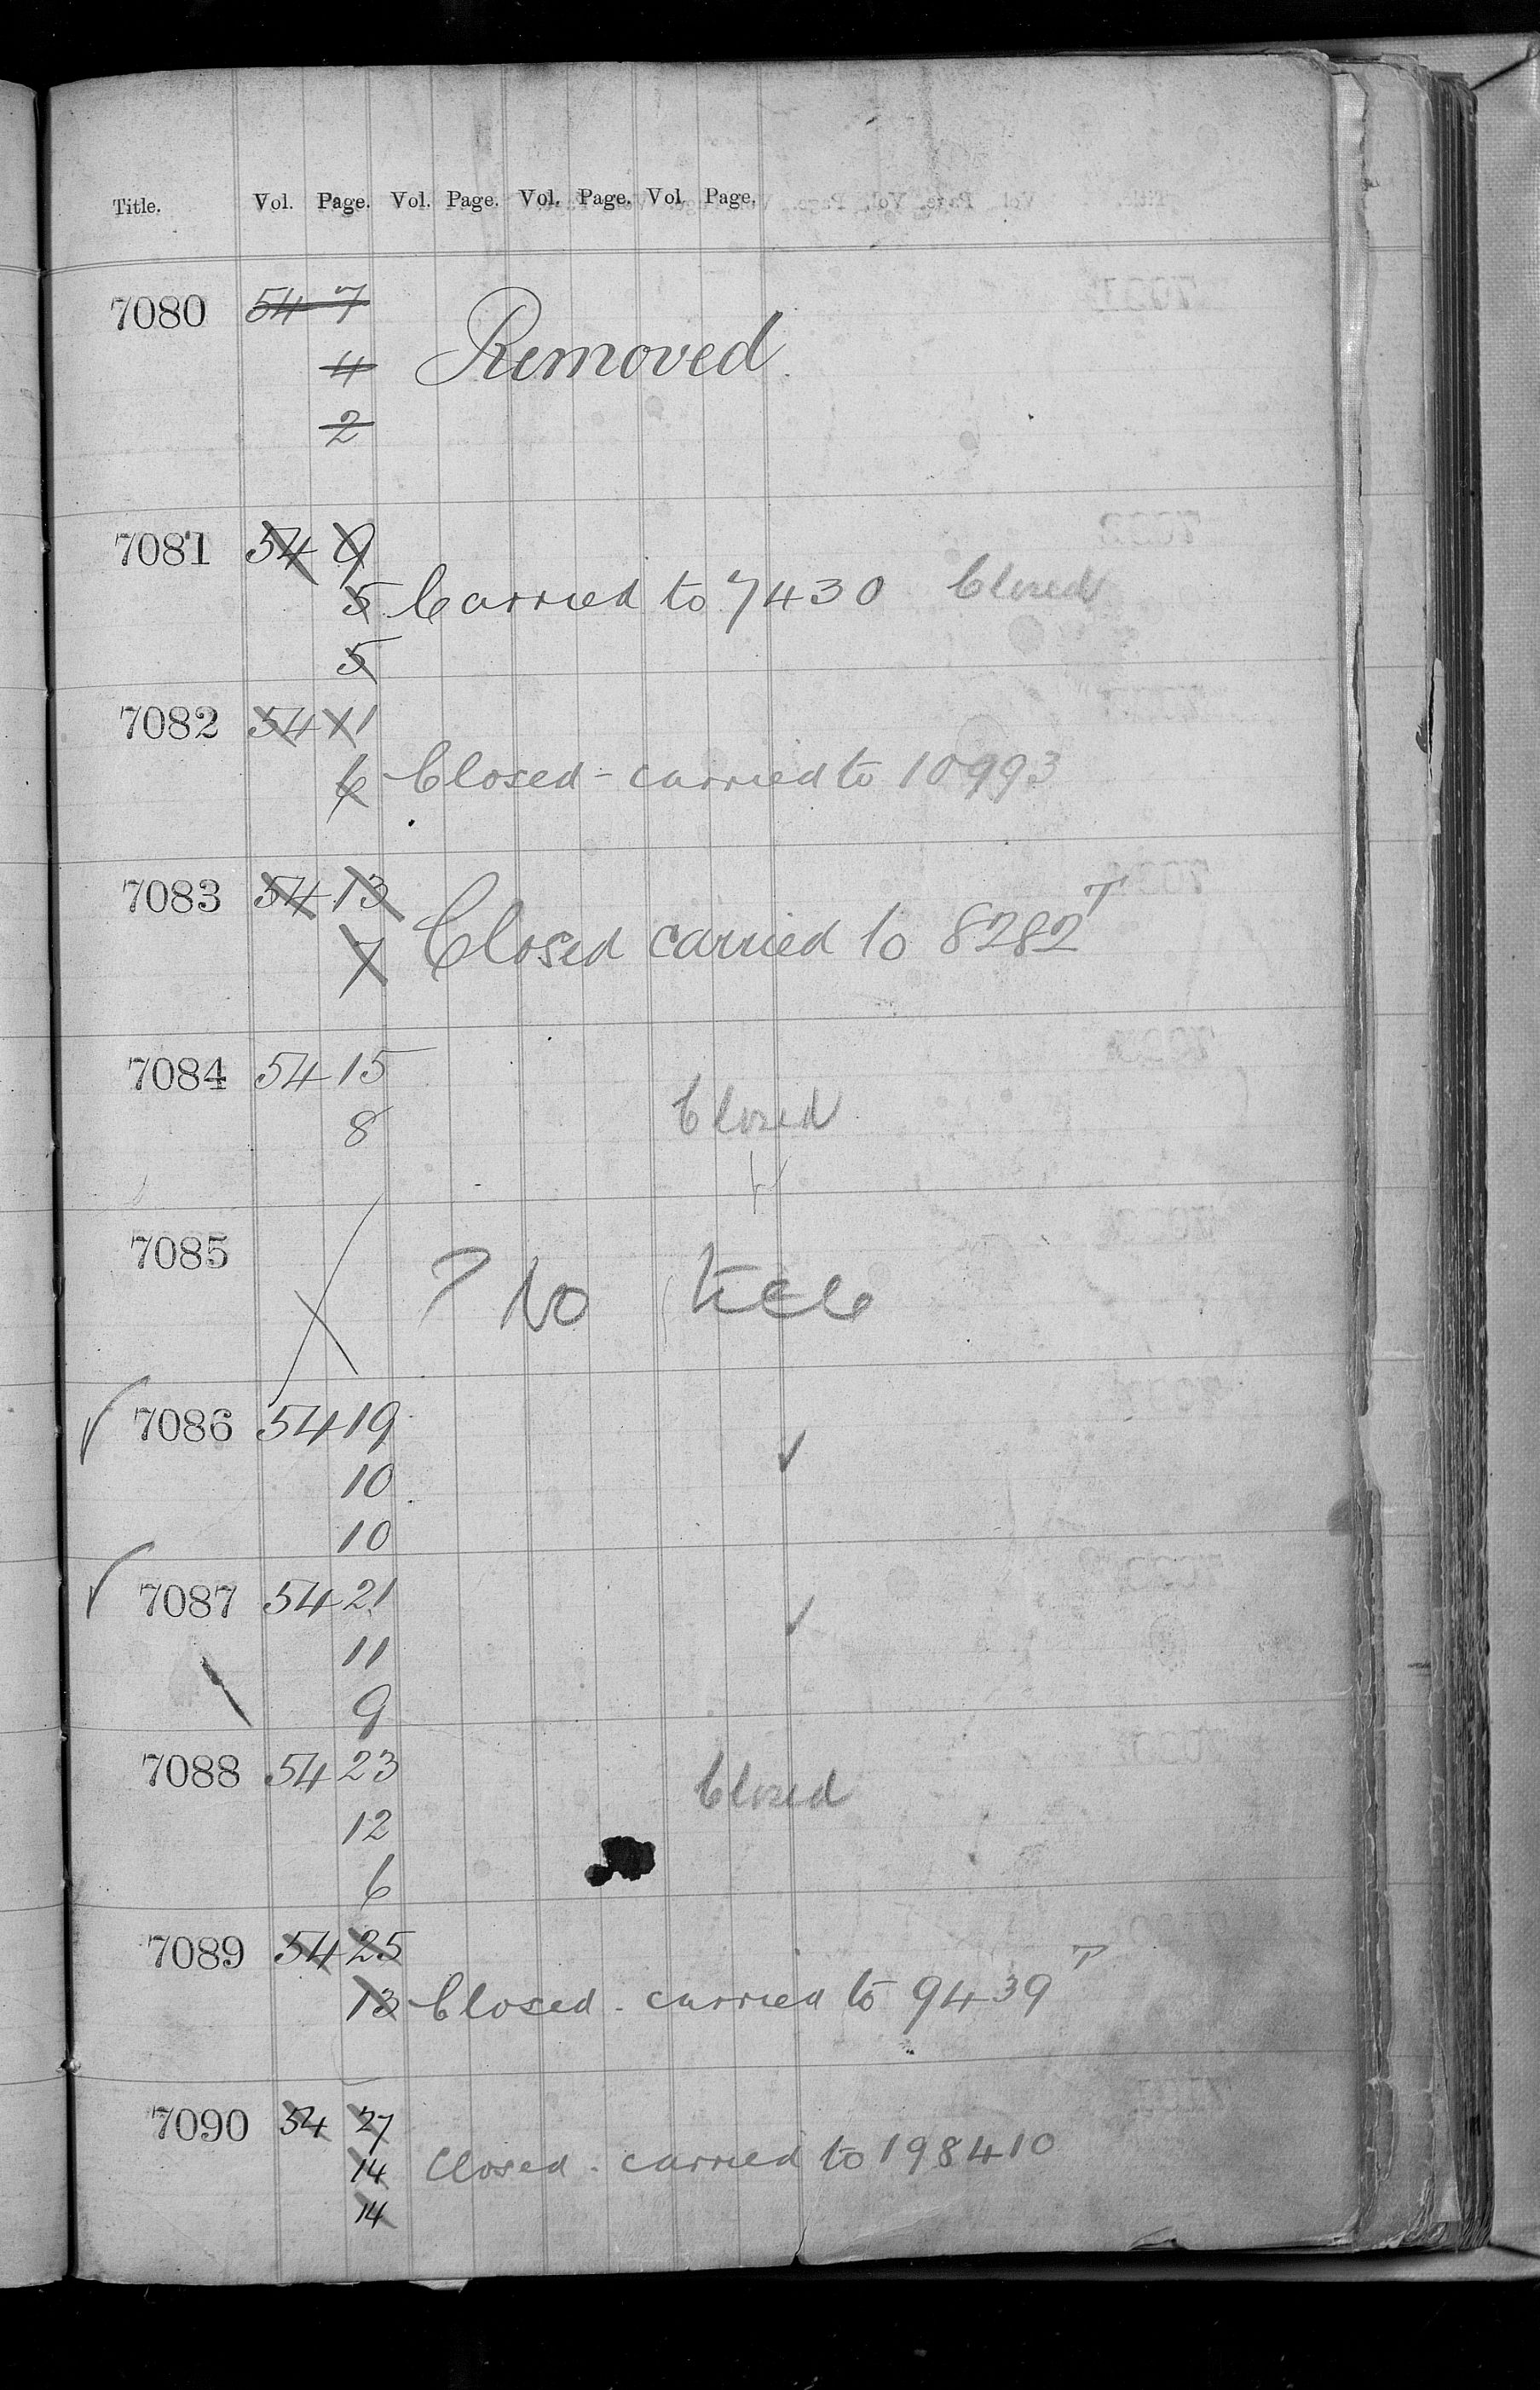 Title. Vol. Page. Vol. Page. Vol. Page. Vol Page.
7080 54 7
4 Removed
2
7081 54 9
5 Carried to 7430 Closed
5
7082 54 11
6 Closed - carried to 10993
7083 54 13
7 Closed carried to 8282T
7084 54 15
8 Closed
7085
? No title
7086 54 19
10
10
7087 54 21
11
9
7088 54 23
Closed
12
6
7089 54 25
13 Closed - carried to 9439T
7090 54 27
14 Closed - carried to 198410
14